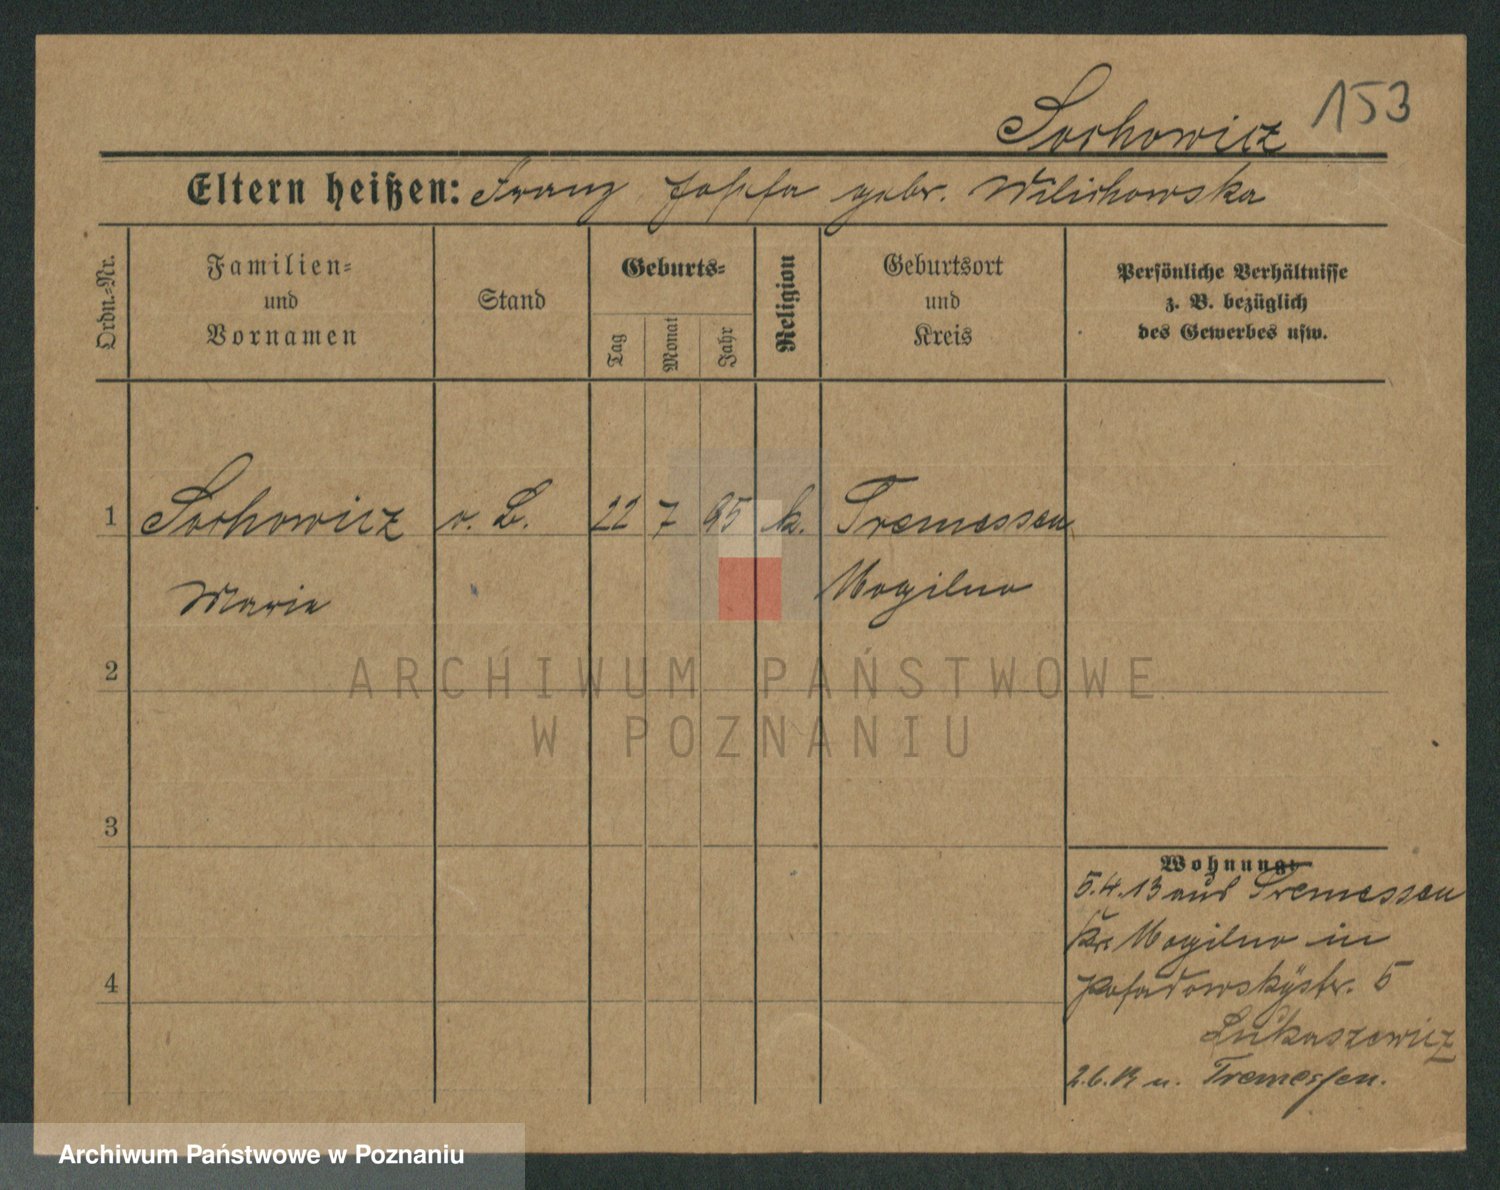 Sochowicz 153
Eltern heißen: Franz Josefa gebr. Wilichowska
Ordn.-Nr.
Familien-
und
Vornamen
Stand
Geburts-
Tag
Monat
Jahr
Religion
Geburtsort
und
Kreis
Persönliche Verhältnisse
z. B. bezüglich
des Gewerbes usw.
1 Sochowicz o. B. 22 7 95 k. Tremessen
Marie Mogilno
2
3
4
Wohnung
5.4.13 aus Tremessen
Kr. Mogilno in
Posadowskystr. 5
Lukaszewicz
2.6.13 n. Tremessen.
ARCHIWUM PAŃSTWOWE
W POZNANIU
Archiwum Państwowe w Poznaniu